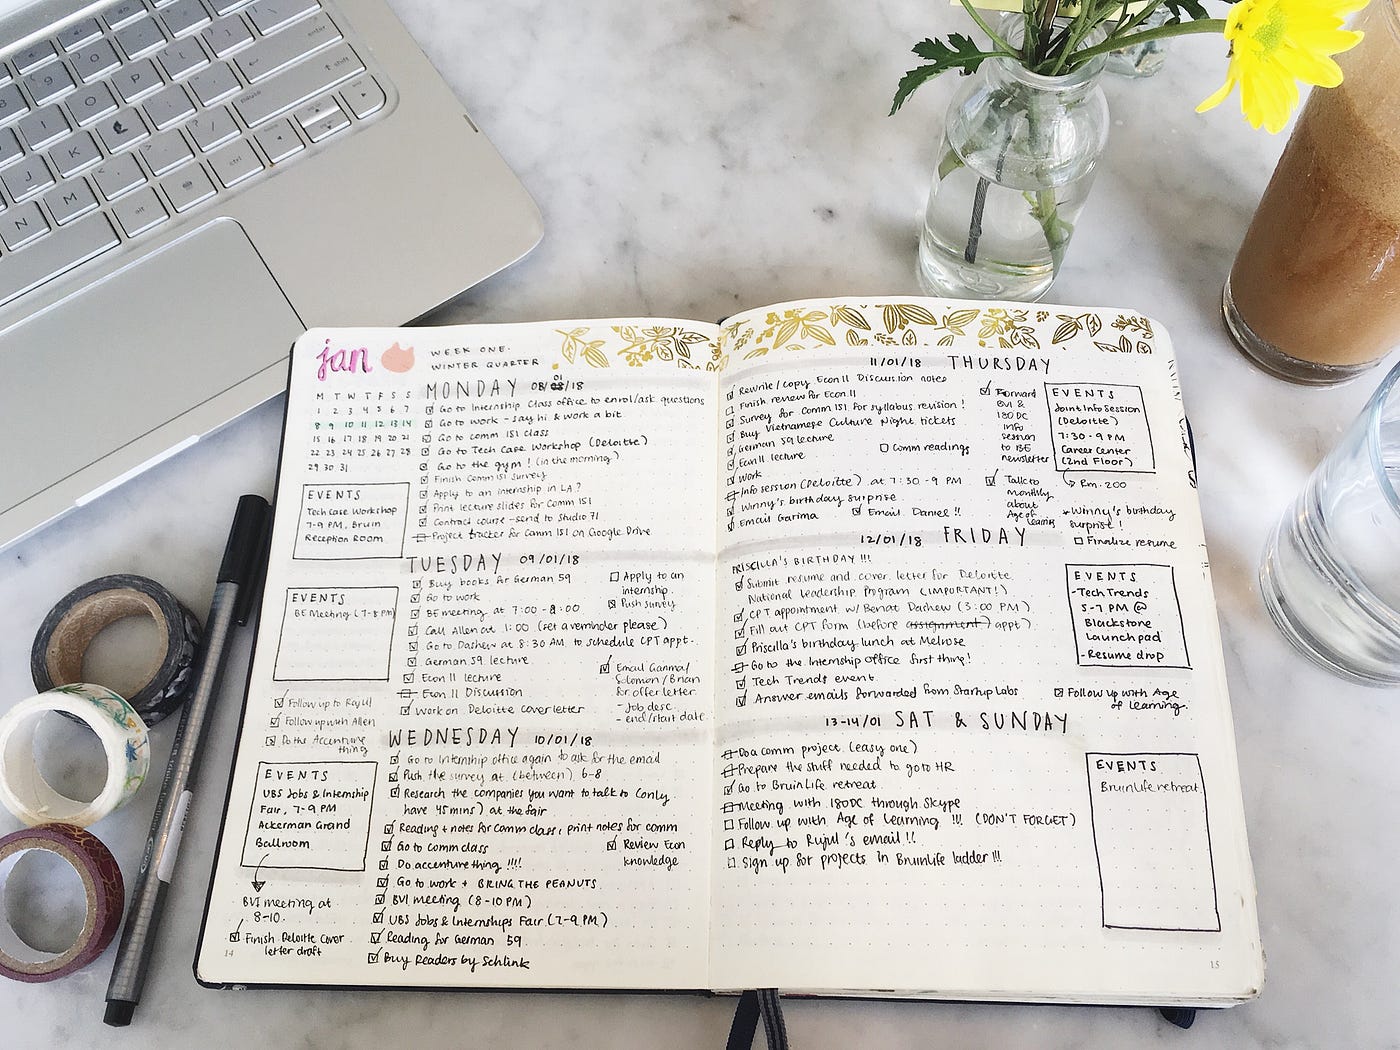 jan
WEEK ONE.
WINTER QUARTER
M T W T F S S
1 2 3 4 5 6 7
8 9 10 11 12 13 14
15 16 17 18 19 20 21
22 23 24 25 26 27 28
29 30 31
MONDAY 08/01/18
Go to Internship Class office to enrol/ask questions
Go to work - say hi & work a bit
Go to comm 151 class
Go to Tech Case Workshop (Deloitte)
Go to the gym! (in the morning)
Finish Comm 151 survey
Apply to an internship in LA?
Print lecture slides for Comm 151
Contract course - send to Studio 71
Project tracker for Comm 151 on Google Drive
EVENTS
Tech Case Workshop
7-9 PM, Bruin
Reception Room
TUESDAY 09/01/18
Buy books for German 59
Go to work
BE meeting at 7:00 - 8:00
Call Allen at 1:00 (set a reminder please)
Go to Dashew at 8:30 AM to schedule CPT appt.
German 59 lecture
Econ 11 lecture
Econ 11 Discussion
Work on Deloitte cover letter
Apply to an
internship.
Push survey
Email Ganma/
Solomon/Brian
for offer letter.
- Job desc.
- end/start date.
EVENTS
BE Meeting (7-8 PM)
Follow up to Rayul
Follow up with Allen
Do the Accenture
thing
WEDNESDAY 10/01/18
Go to Internship office again to ask for the email
Push the survey at (between) 6-8
Research the companies you want to talk to (only
have 45 mins) at the fair
Reading + notes for comm class, print notes for comm
Go to comm class
Do accenture thing !!!!
Go to work + BRING THE PEANUTS
BVI meeting (8-10 PM)
UBS Jobs & Internships Fair (7-9 PM)
Reading for German 59
Buy Readers by Schlink
Review Econ
knowledge
EVENTS
UBS Jobs & Internship
Fair, 7-9 PM
Ackerman Grand
Ballroom
BVI meeting at
8-10.
Finish Deloitte Cover
letter draft
14
11/01/18 THURSDAY
Rewrite/copy Econ 11 Discussion notes
Finish review for Econ 11
Survey for Comm 151 for syllabus revision!
Buy Vietnamese Culture Night tickets
German 59 lecture
Econ 11 lecture
Work
Info session (Deloitte) at 7:30-9 PM
Winny's birthday surprise
Email Garima
Email Daniel!!
Comm readings
Forward
BVI &
180 DC
info
session
to BE
newsletter
Talk to
monthly
about
Age of
learning
EVENTS
Joint Info Session
(Deloitte)
7:30-9 PM
Career Center
(2nd Floor)
Rm. 200
Winny's birthday
surprise!
Finalize resume
12/01/18 FRIDAY
PRISCILLA'S BIRTHDAY !!!
Submit resume and cover letter for Deloitte
National Leadership Program (IMPORTANT!)
CPT appointment w/ Benat Dashew (3:00 PM)
Fill out CPT form (before assignment) appt).
Priscilla's birthday lunch at Melrose
Go to the Internship office first thing!
Tech Trends event
Answer emails forwarded from Startup Labs
EVENTS
-Tech Trends
5-7 PM @
Blackstone
Launchpad
-Resume drop
Follow up with Age
of Learning.
13-14/01 SAT & SUNDAY
Do a comm project (easy one)
Prepare the stuff needed to go to HR
Go to BruinLife retreat
Meeting with 180DC through Skype
Follow up with Age of Learning !!! (DON'T FORGET)
Reply to Rujul's email !!
Sign up for projects in BruinLife ladder !!!
EVENTS
BruinLife retreat
15